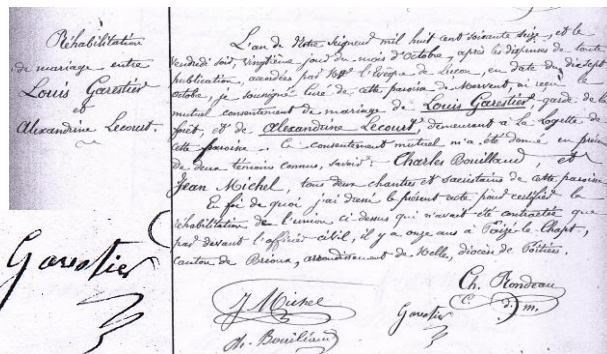 Réhabilitation
de mariage entre
Louis Garestier
et
Alexandrine Lecourt.
L'an de Notre Seigneur mil huit cent soixante seize, et le
Vendredi soir, vingtième jour du mois d'Octobre, après les dispenses de toute
publication, accordées par Mgr l'Evêque de Luçon, en date du dix sept
octobre, je soussigné curé de cette paroisse de Mervent, ai reçu le
mutuel consentement de mariage de Louis Garestier, garde de la
forêt, et de Alexandrine Lecourt, demeurant à la Logette de
cette paroisse. Ce consentement mutuel m'a été donné en présence
de deux témoins connus, savoir: Charles Bouillaud, et
Jean Michel, tous deux chantres et sacristains de cette paroisse
En foi de quoi j'ai dressé le présent acte pour certifier la
réhabilitation de l'union ci dessus qui n'avait été contractée que
par devant l'officier civil, il y a onze ans à Paizé le Chapt,
canton de Brioux, arrondissement de Melle, diocèse de Poitiers.
Garestier
Ch. Rondeau
J Michel
Garestier
Ch. Bouillaud